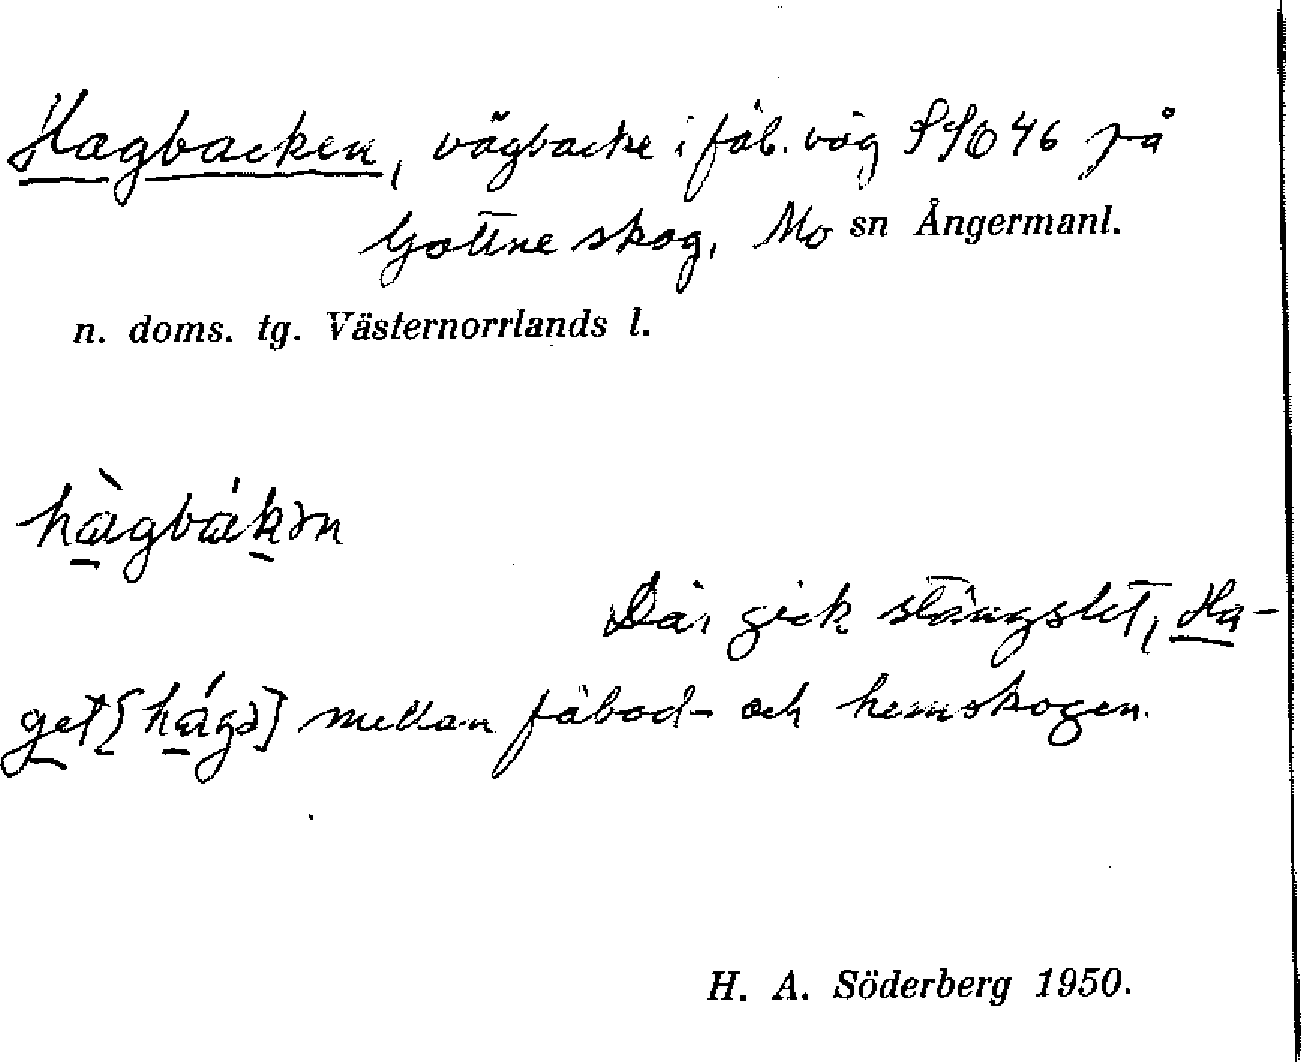 Hagbacken, vägbacke i fäb. väg 46 på
Gottne skog, Mo sn Ångermanl.
n. doms. tg. Västernorrlands l.
hàgbákən
Där gick stängslet, Ha-
get [hágə] mellan fäbod- och hemskogen.
H. A. Söderberg 1950.